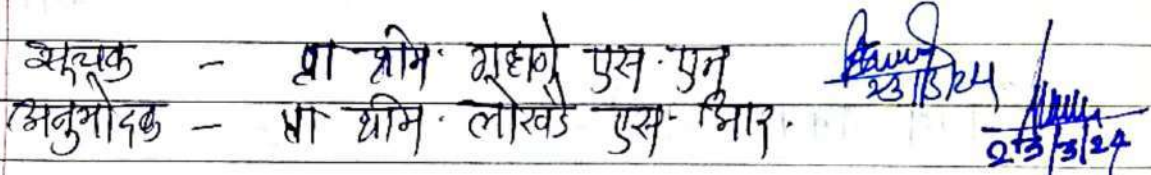 सूचक - प्रा श्रीम. गुहागे एस. एन 23/3/24
अनुमोदक - प्रा श्रीम. लोखंडे एस. आर. 23/3/24